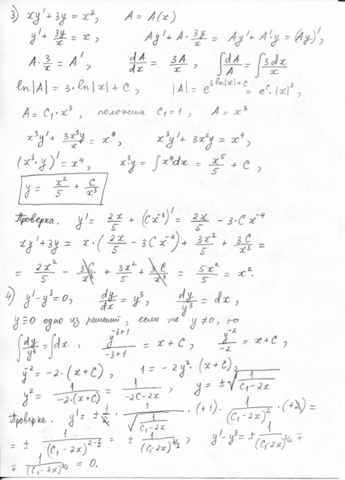 3) xy' + 3y = x², A = A(x)
y' + 3y/x = x, Ay' + A·3y/x = Ay' + A'y = (Ay)',
A·3/x = A', dA/dx = 3A/x, ∫dA/A = ∫3dx/x
ln|A| = 3·ln|x| + C, |A| = e^(3ln|x|+C) = e^C·|x|³,
A = C₁·x³, положим C₁ = 1, A = x³
x³y' + 3x³y/x = x⁴, x³y' + 3x²y = x⁴,
(x³·y)' = x⁴, x³y = ∫x⁴dx = x⁵/5 + C,
y = x²/5 + C/x³
Проверка. y' = 2x/5 + (Cx⁻³)' = 2x/5 - 3·Cx⁻⁴
xy' + 3y = x·(2x/5 - 3Cx⁻⁴) + 3x²/5 + 3C/x³ =
= 2x²/5 - 3C/x³ + 3x²/5 + 3C/x³ = 5x²/5 = x².
4) y' - y³ = 0, dy/dx = y³, dy/y³ = dx,
y ≡ 0 одно из решений, если же y ≠ 0, то
∫dy/y³ = ∫dx, y^(-3+1)/(-3+1) = x + C, y⁻²/-2 = x + C,
y⁻² = -2·(x+C), 1 = -2y²·(x+C),
y² = 1/(-2·(x+C)) = 1/(-2C-2x), y = ±√(1/(C₁-2x))
Проверка. y' = ±1/2·1/√(1/(C₁-2x))·(+1)·1/(C₁-2x)²·(+2) =
= ± 1/(C₁-2x)^(2-1/2) = ± 1/(C₁-2x)^(3/2), y' - y³ = ± 1/(C₁-2x)^(3/2) ∓
∓ 1/(C₁-2x)^(3/2) = 0.